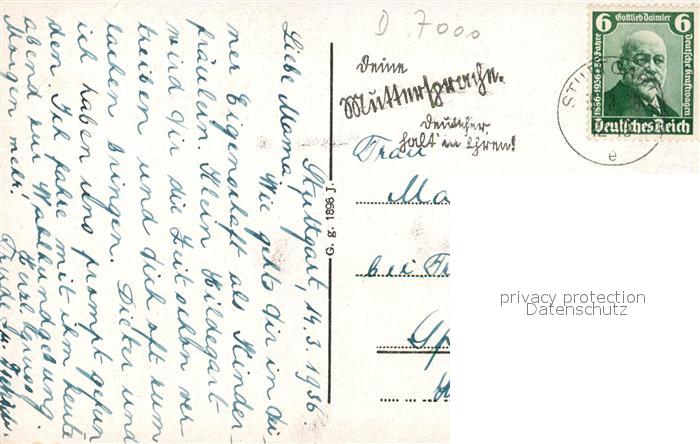 Stuttgart, 14.3.1936.
Liebe Mama!
Wie geht's dir in dei-
ner Eigenschaft als Kinder-
fräulein. Klein Hildegart
wird dir die Zeit schon ver-
treiben und dich oft zum
lachen bringen. Dieter und
ich haben uns prompt gefun
den. Ich fahre mit ihm heute
abend zur Wahlkundgebung.
Morgen mehr. Herzl. Gruss
G. g. 1898 J.
D 7000
deine
Muttersprache.
deutscher
halt in Ehren!
Frau
Ma
bei Fr
6 Gottlieb Daimler 6
1886-1936 * 50 Jahre
Deutsche Kraftwagen
Deutsches Reich
STU
e
privacy protection
Datenschutz